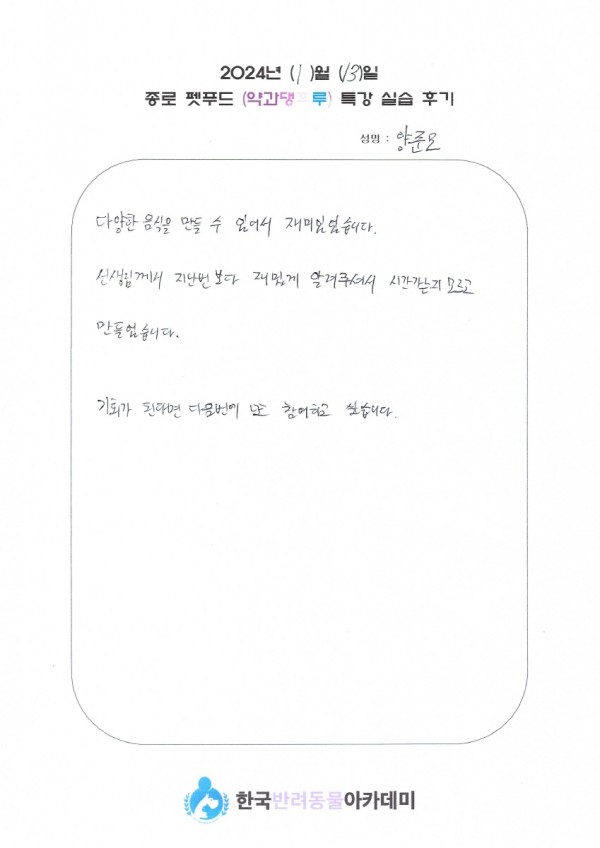 2024년 (1)월 (13)일
종로 펫푸드 (약과댕후루) 특강 실습 후기
성명 : 양준모
다양한 음식을 만들 수 있어서 재미있었습니다.
선생님께서 지난번보다 재밌게 알려주셔서 시간가는지 모르고
만들었습니다.
기회가 된다면 다음번에 또 참여하고 싶습니다.
한국반려동물아카데미